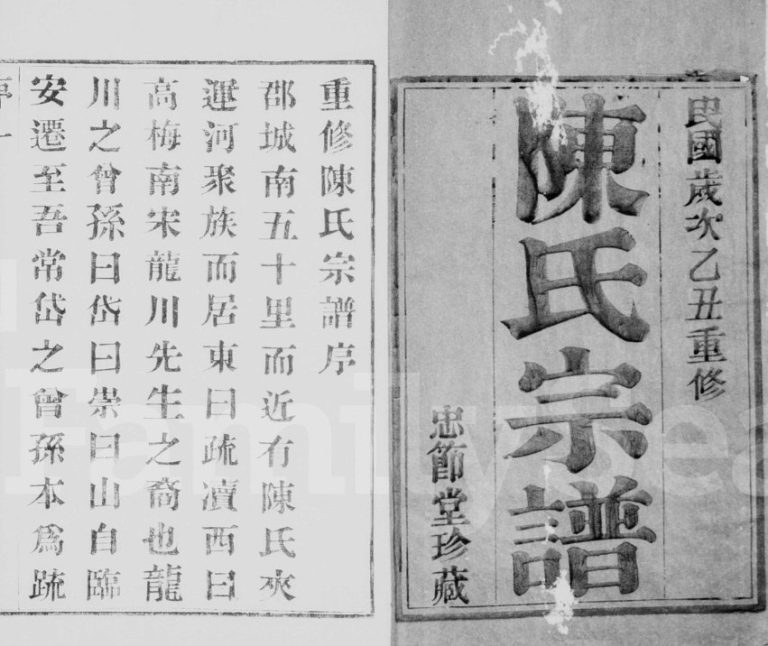 民國歲次乙丑重修
陳氏宗譜
忠節堂珍藏
重修陳氏宗譜序
郡城南五十里而近有陳氏夾
運河聚族而居東曰疏瀆西曰
高梅南宋龍川先生之裔也龍
川之曾孫曰岱曰崇曰山自臨
安遷至吾常岱之曾孫本爲疏
序一